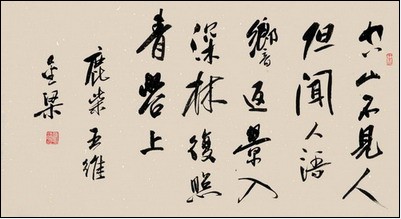 空山不見人
但聞人語
響返景入
深林復照
青苔上
鹿柴王維
金梁